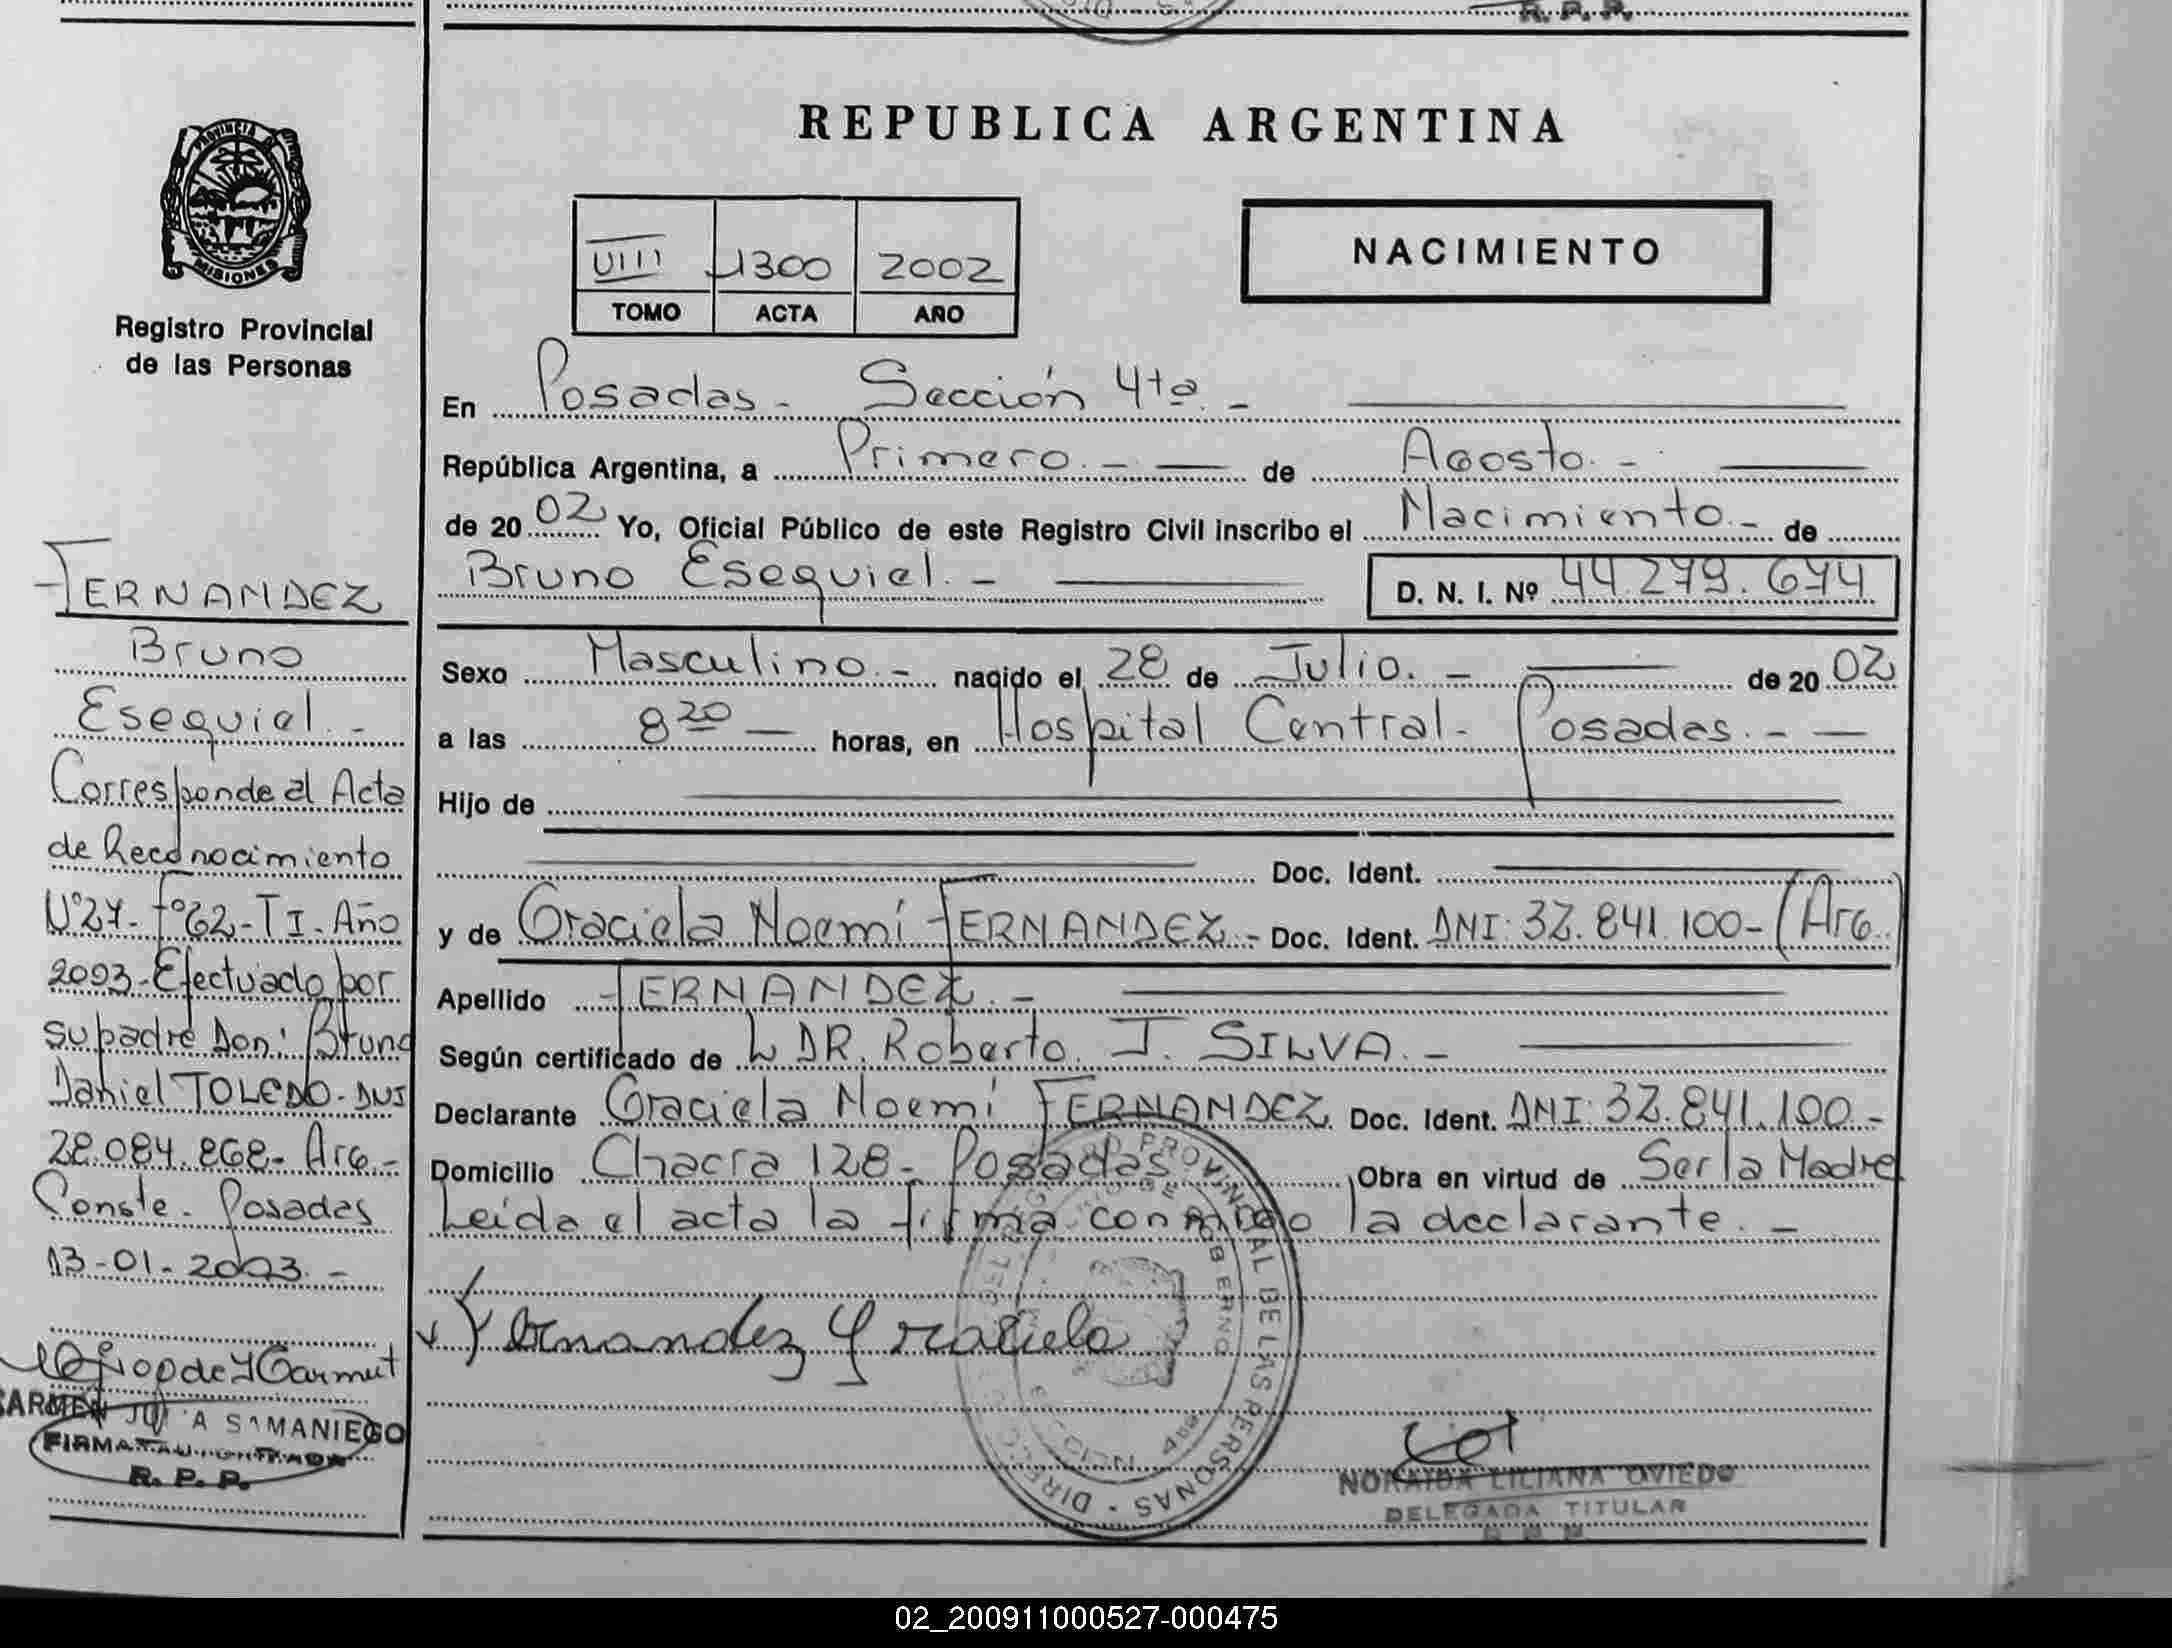 R. P. R.
PROVINCIA DE
MISIONES
Registro Provincial
de las Personas
FERNANDEZ
Bruno
Esequiel.-
Corresponde al Acta
de Reconocimiento
N°27-F°62-T I-Año
2003-Efectuado por
su padre Don: Bruno
Daniel TOLEDO-DNI
28.084.868-Arg-
Conste-Posadas
13-01-2003.-
SAMANIEGO
R. P. P.
REPUBLICA ARGENTINA
VIII 1300 2002
TOMO ACTA AÑO
NACIMIENTO
En Posadas- Sección 4ta.-
República Argentina, a Primero.- de Agosto.-
de 2002 Yo, Oficial Público de este Registro Civil inscribo el Nacimiento.- de
Bruno Esequiel.- D. N. I. Nº 44.279.674
Sexo Masculino.- nacido el 28 de Julio.- de 2002
a las 8 20 horas, en Hospital Central- Posadas.-
Hijo de
Doc. Ident.
y de Graciela Noemí FERNANDEZ- Doc. Ident. DNI: 32.841.100-(Arg.)
Apellido FERNANDEZ.-
Según certificado de DR. Roberto. J. SILVA.-
Declarante Graciela Noemí FERNANDEZ Doc. Ident. DNI: 32.841.100-
Domicilio Chacra 128- Posadas Obra en virtud de Ser la Madre
Leída el acta la firma conmigo la declarante.-
Fernandez Graciela
PROVINCIAL DE LAS PERSONAS - DIREC
NORAIDA LILIANA OVIEDO
DELEGADA TITULAR
02_200911000527-000475